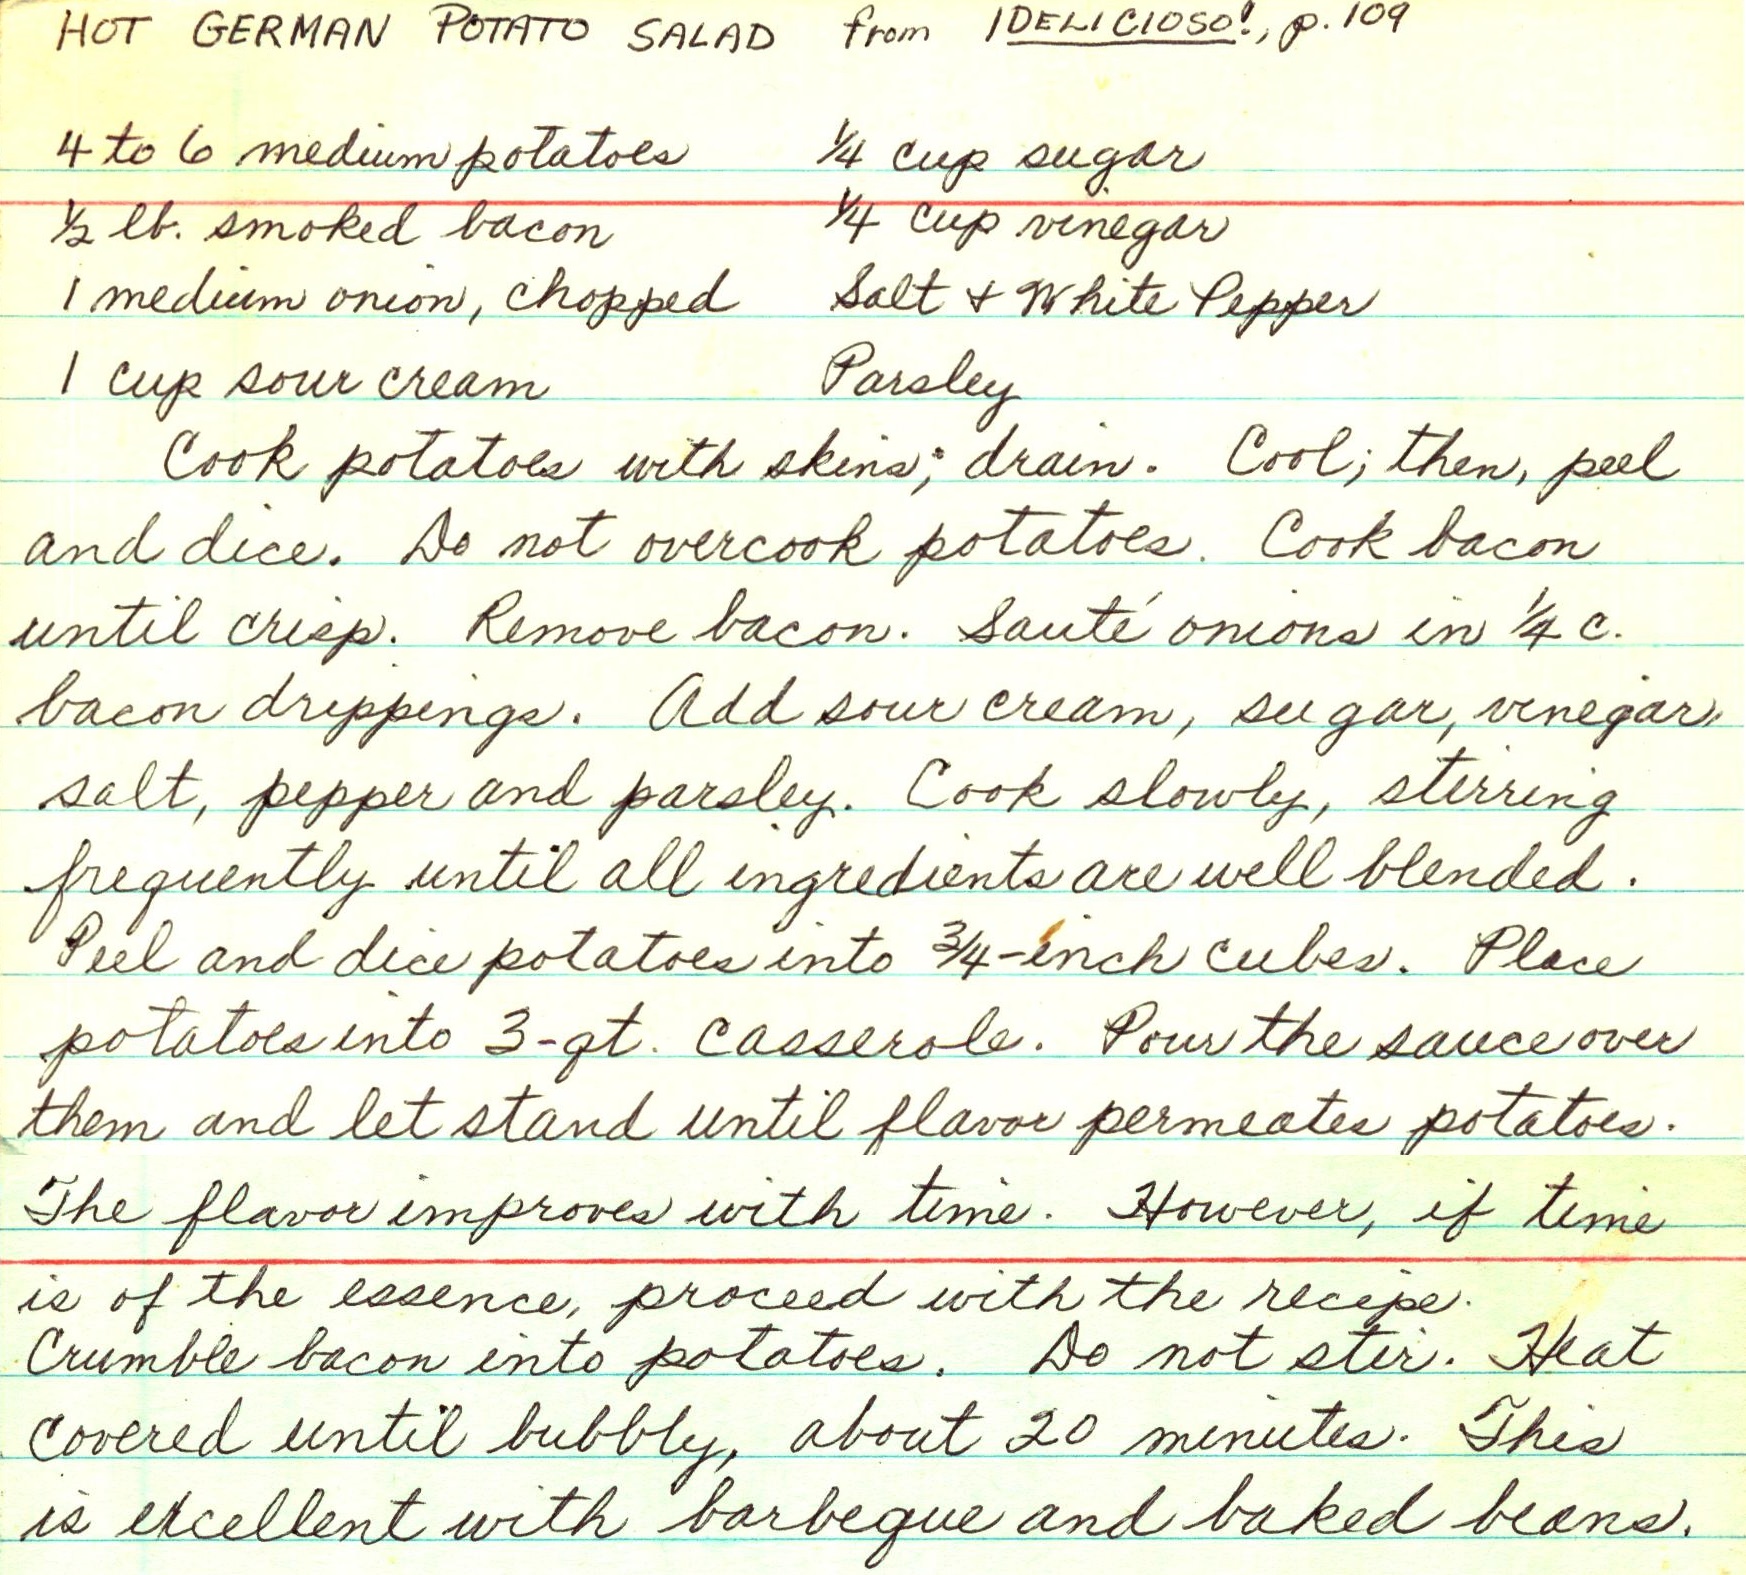 HOT GERMAN POTATO SALAD from ¡DELICIOSO!, p. 109
4 to 6 medium potatoes 1/4 cup sugar
1/2 lb. smoked bacon 1/4 cup vinegar
1 medium onion, chopped Salt + White Pepper
1 cup sour cream Parsley
Cook potatoes with skins; drain. Cool; then, peel
and dice. Do not overcook potatoes. Cook bacon
until crisp. Remove bacon. Sauté onions in 1/4 c.
bacon drippings. Add sour cream, sugar, vinegar,
salt, pepper and parsley. Cook slowly, stirring
frequently until all ingredients are well blended.
Peel and dice potatoes into 3/4-inch cubes. Place
potatoes into 3-qt. casserole. Pour the sauce over
them and let stand until flavor permeates potatoes.
The flavor improves with time. However, if time
is of the essence, proceed with the recipe.
Crumble bacon into potatoes. Do not stir. Heat
covered until bubbly, about 20 minutes. This
is excellent with barbeque and baked beans.